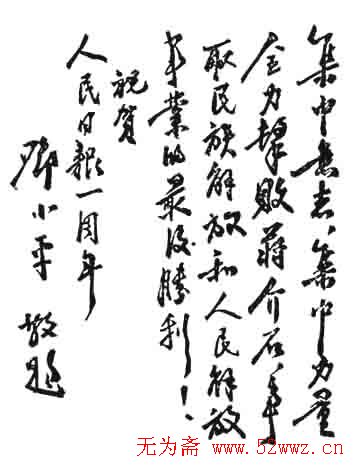 集中意志、集中力量
全力擊敗蔣介石、爭
取民族解放和人民解放
事業的最後勝利！
祝賀
人民日報一周年
鄧小平 敬題
无为斋 www.52wwz.cn